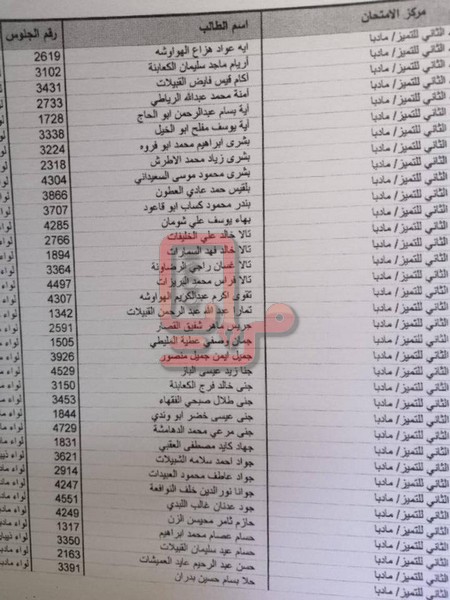 مركز الامتحان اسم الطالب رقم الجلوس
الثاني للتميز/ مادبا ايه عواد هزاع الهواوشه 2619
الثاني للتميز/ مادبا أريام ماجد سليمان الكعابنة 3102 لواء
الثاني للتميز/ مادبا أكام قيس فايض القبيلات 3431 لواء
الثاني للتميز/ مادبا آمنة محمد عبدالله الرياطي 2733 لواء
الثاني للتميز/ مادبا آية بسام عبدالرحمن ابو الحاج 1728 لواء
الثاني للتميز/ مادبا آية يوسف مفلح ابو الخيل 3338 لواء
الثاني للتميز/ مادبا بشرى ابراهيم محمد ابو فروه 3224 لواء
الثاني للتميز/ مادبا بشرى زياد محمد الاطرش 2318 لواء
الثاني للتميز/ مادبا بشرى محمود موسى السعيداني 4304 لواء
الثاني للتميز/ مادبا بلقيس حمد عادي العطون 3866 لواء
الثاني للتميز/ مادبا بندر محمود كساب ابو قاعود 3707 لواء
الثاني للتميز/ مادبا بهاء يوسف علي شومان 4285 لواء
الثاني للتميز/ مادبا تالا خالد علي الخليفات 2766 لواء
الثاني للتميز/ مادبا تالا خالد فهد السمارات 1894 لواء
الثاني للتميز/ مادبا تالا غسان راجي الرضاونة 3364 لواء
الثاني للتميز/ مادبا تالا فراس محمد البريزات 4497 لواء
الثاني للتميز/ مادبا تقوى اكرم عبدالكريم الهواوشه 4307 لواء
الثاني للتميز/ مادبا عبد الرحمن القبيلات 1342 لواء
الثاني للتميز/ مادبا جريس ماهر شفيق القصار 2591 لواء
الثاني للتميز/ مادبا جمان وصفي عطية المليطي 1505 لواء
الثاني للتميز/ مادبا جميل ايمن جميل منصور 3926 لواء
الثاني للتميز/ مادبا جنى زيد عيسى الباز 4529 لواء
الثاني للتميز/ مادبا جنى خالد فرج الكعابنة 3150 لواء
الثاني للتميز/ مادبا جنى طلال صبحي الفقهاء 3453 لواء
الثاني للتميز/ مادبا جنى عيسى خضر ابو وندي 1844 لواء
الثاني للتميز/ مادبا جنى مرعي محمد الدهامشة 4729 لواء
الثاني للتميز/ مادبا جهاد كايد مصطفى العقبي 1831 لواء
الثاني للتميز/ مادبا جواد احمد سلامه الشبيلات 3621 لواء
الثاني للتميز/ مادبا جواد عاطف محمود العبيدات 2914 لواء
الثاني للتميز/ مادبا جوانا نورالدين خلف النوافعة 4247 لواء
الثاني للتميز/ مادبا جود عدنان غالب اللبدي 4551 لواء
الثاني للتميز/ مادبا حازم ثامر محيسن الزن 4249 لواء
الثاني للتميز/ مادبا حسام عصام محمد ابراهيم 1317 لواء
الثاني للتميز/ مادبا حسام عيد سليمان القبيلات 3350 لواء
الثاني للتميز/ مادبا حسن عبد الرحيم عايد العميشات 2163 لواء
الثاني للتميز/ مادبا حلا بسام حسين بدران 3391 لواء